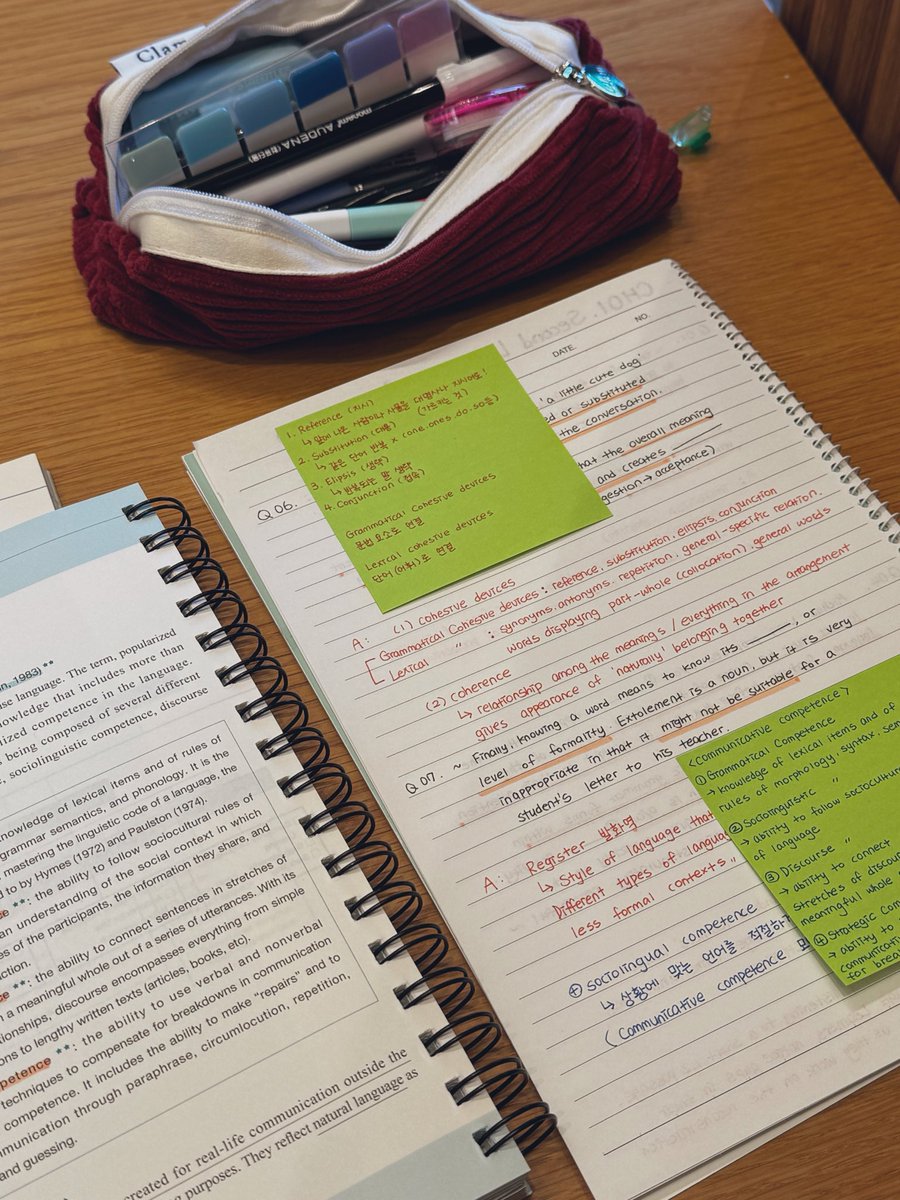 Clar
monami AUDENA
CH01. Second
DATE.
NO.
'a little cute dog'
ed or substituted
the conversation.
hat the overall meaning
and creates
gestion → acceptance)
1. Reference (지시)
↳ 앞에 나온 사람이나 사물을 대명사나 지시어로!
2. Substitution (대용) (가르키는 것)
↳ 같은 단어 반복 x (one.ones.do.so등)
3. Elipsis (생략)
↳ 반복되는 말 생략
4. Conjunction (접속)
Grammatical cohesive devices
문법요소로 연결
Lexical cohesive devices
단어(어휘)로 연결
Q 06.
A: (1) cohesive devices
Grammatical Cohesive devices : reference, substitution, ellipsis, conjunction
Lexical 〃 : synonyms, antonyms, repetition, general-specific relation,
words displaying part-whole (collocation), general words
(2) coherence
↳ relationship among the meanings / everything in the arrangement
gives appearance of 'naturally' belonging together
Q 07. ~ Finally, knowing a word means to know its ____, or
level of formality. Extolement is a noun, but it is very
inappropriate in that it might not be suitable for a
student's letter to his teacher.
A: Register 발화역
↳ Style of language that
Different types of langua
less formal contexts"
⊕ sociolingual competence
↳ 상황에 맞는 언어를 적절하
(Communicative competence
<Communicative competence>
① Grammatical Competence
→ knowledge of lexical items and of
rules of morphology, syntax, sem
② Sociolinguistic 〃
→ ability to follow sociocultur
of language
③ Discourse 〃
→ ability to connect
stretches of discou
meaningful whole
④ Strategic Com
→ ability to
communicativ
for brea
in, 1983)**
se language. The term, popularized
nowledge that includes more than
alized competence in the language.
s being composed of several different
e, sociolinguistic competence, discourse
knowledge of lexical items and of rules of
grammar semantics, and phonology. It is the
mastering the linguistic code of a language, the
d to by Hymes (1972) and Paulston (1974).
e **: the ability to follow sociocultural rules of
an understanding of the social context in which
es of the participants, the information they share, and
ction.
e **: the ability to connect sentences in stretches of
n a meaningful whole out of a series of utterances. With its
tionships, discourse encompasses everything from simple
ons to lengthy written texts (articles, books, etc).
petence **: the ability to use verbal and nonverbal
techniques to compensate for breakdowns in communication
competence. It includes the ability to make "repairs" and to
mmunication through paraphrase, circumlocution, repetition,
and guessing.
created for real-life communication outside the
ng purposes. They reflect natural language as